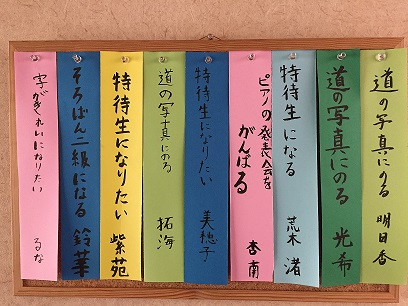 道の写真にのる 明日香
道の写真にのる 光希
特待生になる 荒木渚
ピアノの発表会を
がんばる 杏南
特待生になりたい 美穂子
道の写真にのる 拓海
特待生になりたい 紫苑
そろばん二級になる 鈴華
字がきれいになりたい るな